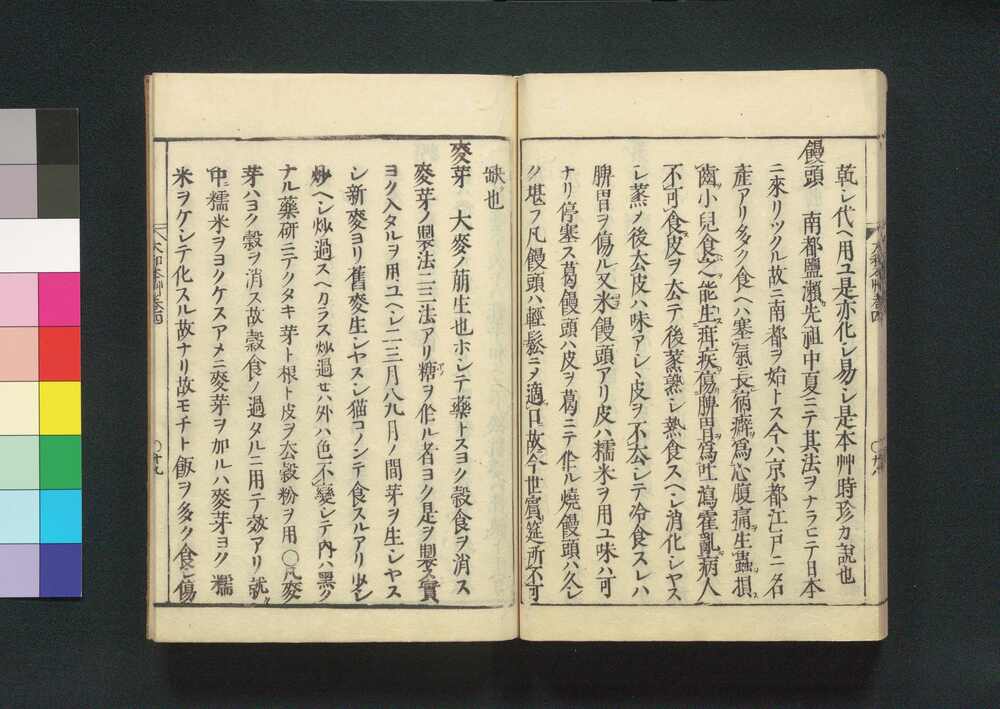 乾シ代ヘ用ユ是亦化シ易シ是本艸時珍カ說也
饅頭 南都鹽瀬先祖中夏ニテ其法ヲナラヒテ日本
ニ來リツクル故ニ南都ヲ始トス今ハ京都江戸ニ名
產アリ多ク食ヘハ塞氣長病癖爲心腹痛生蟲損
齒小兒食之能生疳疾傷脾胃爲吐瀉霍亂病人
不可食皮ヲ去テ後蒸熟シ熱食スヘシ消化シヤス
シ蒸ノ後去皮ハ味アシ丶皮ヲ不去シテ冷食スレハ
脾胃ヲ傷ル又米饅頭アリ皮ハ糯米ヲ用ユ味ハ可
ナリ停塞ス葛饅頭ハ皮ヲ葛ニテ作ル燒饅頭ハ久シ
ク堪フ凡饅頭ハ輕鬆ニノ適口故今世賓筵所不可
缺也
麥芽 大麥ノ萠生也ホシテ藥トスヨク穀食ヲ消ス
麥芽ノ製法二三法アリ糖ヲ作ル者ヨク是ヲ製ス實
ヨク入タルヲ用ユヘシ二三月八九月ノ間芽ヲ生シヤス
シ新麥ヨリ舊麥生シヤスシ猫コノンテ食スルアリ少シ
炒ヘシ炒過スヘカラス炒過セハ外ハ色不變シテ內ハ黑ク
ナル藥研ニテクタキ芽ト根ト皮ヲ去穀粉ヲ用〇凡麥
芽ハヨク穀ヲ消ス故穀食ノ過タルニ用テ效アリ就
中糯米ヲヨクケスアメニ麥芽ヲ加ルハ麥芽ヨク糯
米ヲケシテ化スル故ナリ故モチト飯ヲ多ク食シ傷
大和本艸卷四
〇廿九